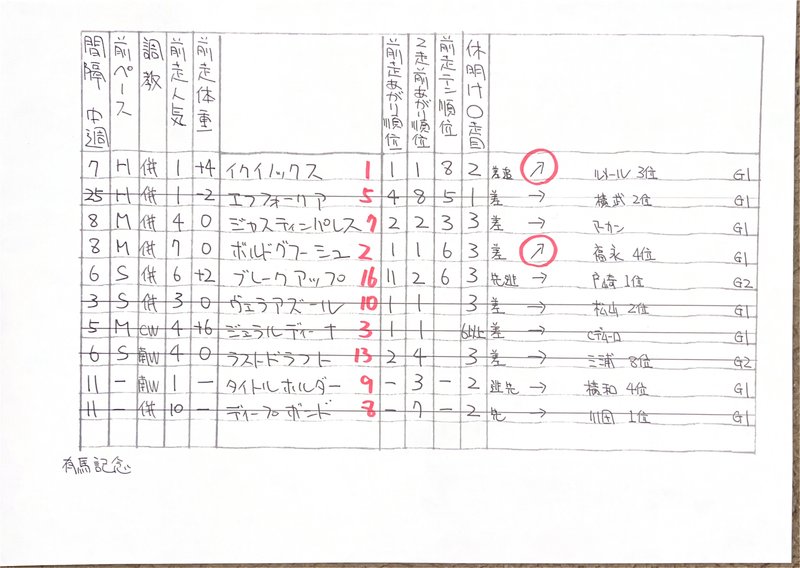 間隔 中週 前ペース 調教 前走人気 前走体重 前走あがり順位 2走前あがり順位 前走テン順位 休明け〇走目
7 H 併 1 +4 イクイノックス 1 1 1 8 2 差 ↗ ルメール 3位 G1
25 H 併 1 -2 エフフォーリア 5 4 8 5 1 差 → 横武 2位 G1
8 M 併 4 0 ジャスティンパレス 7 2 2 3 3 差 → マーカン G1
8 M 併 7 0 ボルドグフーシュ 2 1 1 6 3 差 ↗ 福永 4位 G1
6 S 併 6 +2 ブレークアップ 16 11 2 6 3 先逃 → 戸崎 1位 G2
3 S 併 3 0 ヴェラアズール 10 1 1 3 差 → 松山 2位 G1
5 M CW 4 +6 ジェラルディーナ 3 1 1 6以上 差 → Cデムーロ G1
6 S 南W 4 0 ラストドラフト 13 2 4 3 差 → 三浦 8位 G2
11 - 南W 1 - タイトルホルダー 9 - 3 - 2 逃先 → 横和 4位 G1
11 - 併 10 - ディープボンド 8 - 7 - 2 先 → 川田 1位 G1
有馬記念